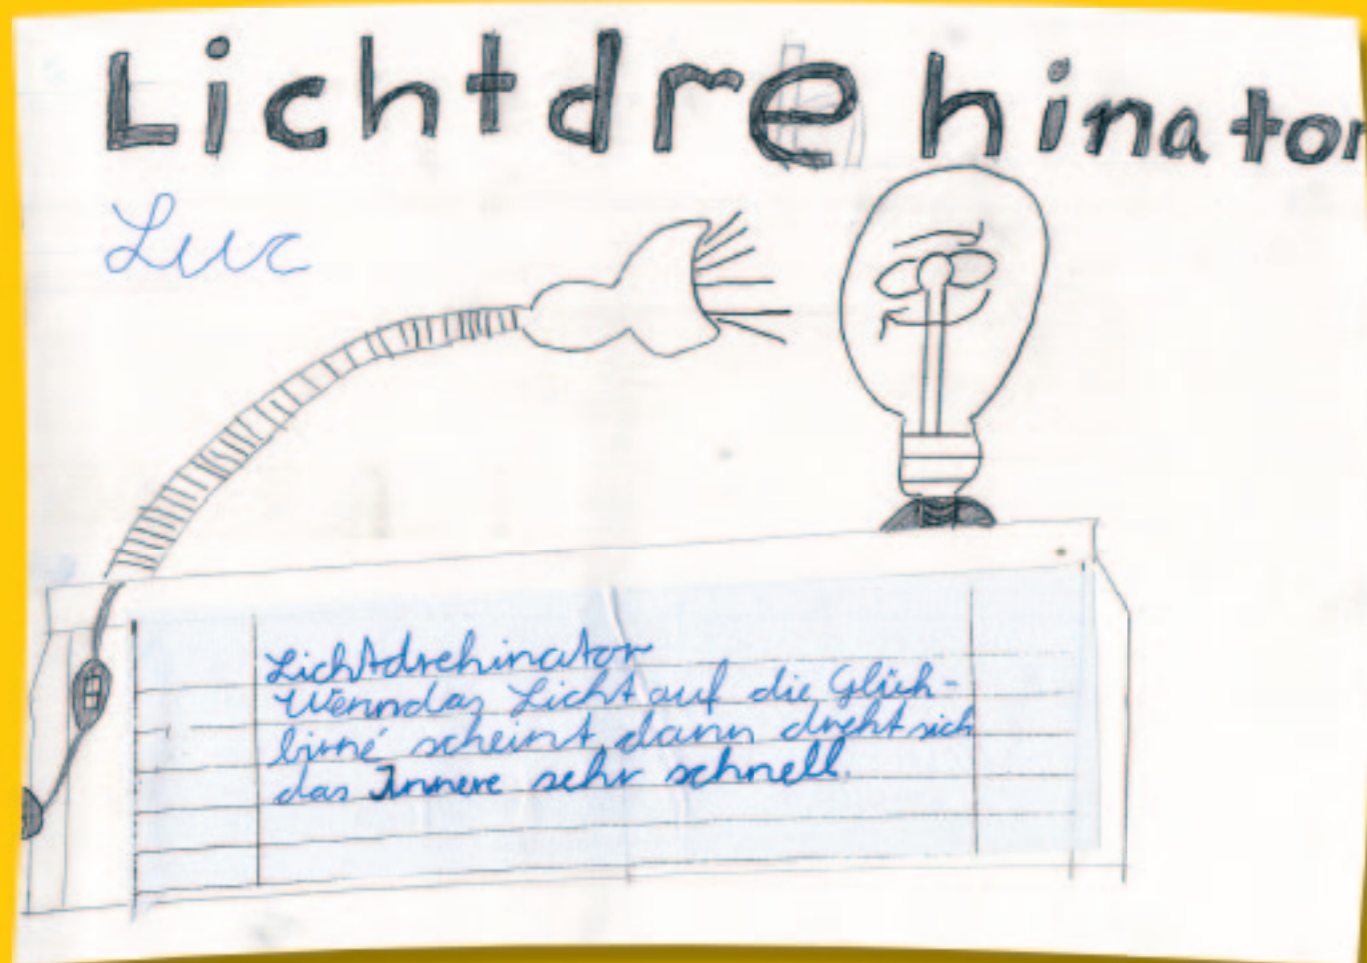 Lichtdrehinator
Luc
Lichtdrehinator
Wenn das Licht auf die Glüh-
birne scheint, dann dreht sich
das Innere sehr schnell.